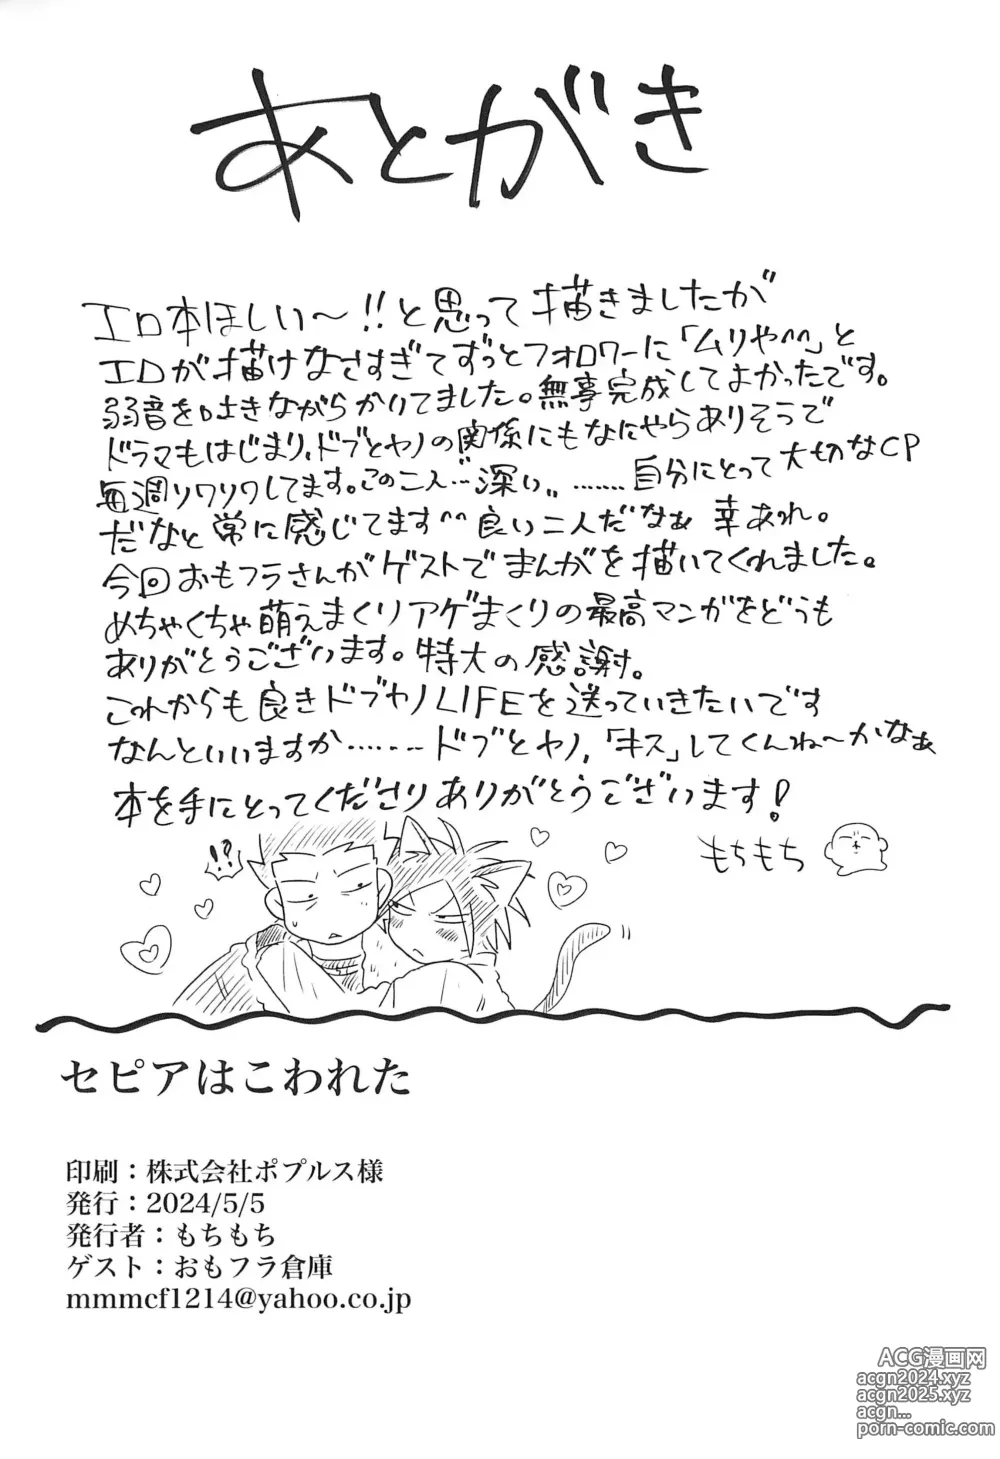 あとがき
エロ本ほしい〜!!と思って描きましたが
エロが描けなさすぎてずっとフォロワーに「ムリや^^」と
弱音を吐きながらかいてました。無事完成してよかったです。
ドラマもはじまり、ドブとヤノの関係にもなにやらありそうで
毎週ソワソワしてます。この二人…深い〟……自分にとって大切なCP
だなと常に感じてます^^良い二人だなぁ 幸あれ。
今回おもフラさんがゲストでまんがを描いてくれました。
めちゃくちゃ萌えまくりアゲまくりの最高マンガをどうも
ありがとうございます。特大の感謝。
これからも良きドブヤノLIFEを送っていきたいです
なんといいますか……ドブとヤノ,「キス」してくんね〜かなぁ
本を手にとってくださりありがとうございます!
もちもち
!?
セピアはこわれた
印刷：株式会社ポプルス様
発行：2024/5/5
発行者：もちもち
ゲスト：おもフラ倉庫
mmmcf1214@yahoo.co.jp
ACG漫画网
acgn2024.xyz
acgn2025.xyz
acgn...
porn-comic.com